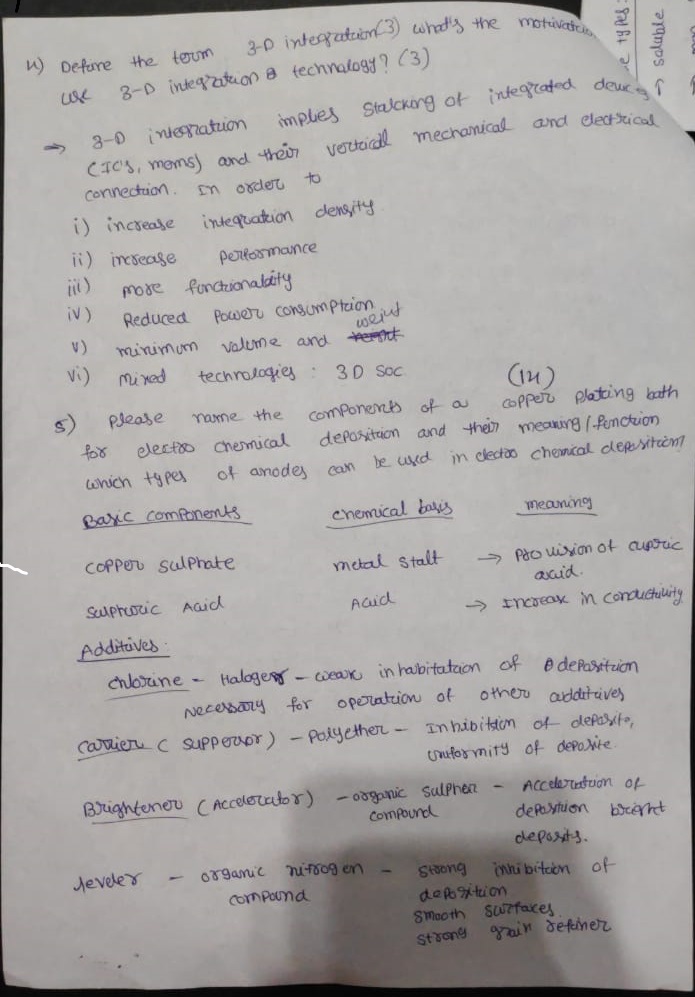 4) Define the term 3-D integration(3) what's the motivation
use 3-D integration technology? (3)
→ 3-D integration implies Stalcking of integrated devices
(IC's, mems) and their vertoicall mechanical and electrical
connection. In order to
i) increase integration density
ii) increase performance
iii) more functionality
iv) Reduced Power consumption
v) minimum volume and weiut
vi) mixed technologies : 3D SOC
(14)
5) Please name the components of a copper plating bath
for electro chemical deposition and their meaning / function
which types of anodes can be used in electro chemical deposition?
Basic components chemical basis meaning
copper sulphate metal stalt → Provision of cupric
axid.
Sulphuric Acid Acid → Increase in conductivity
Additives:
chlorine - Halogen - weak inhabitation of deposition
Necessary for operation of other additives
carrier ( suppersor) - Polyether - Inhibition of deposite,
Uniformity of deposite.
Brightener (Accelorator) - organic sulpher - Acceleration of
compound deposition bright
deposits.
leveler - organic nitrogen - strong inhibition of
compound deposition
smooth surfaces
strong grain refiner
e types:
→ soluble